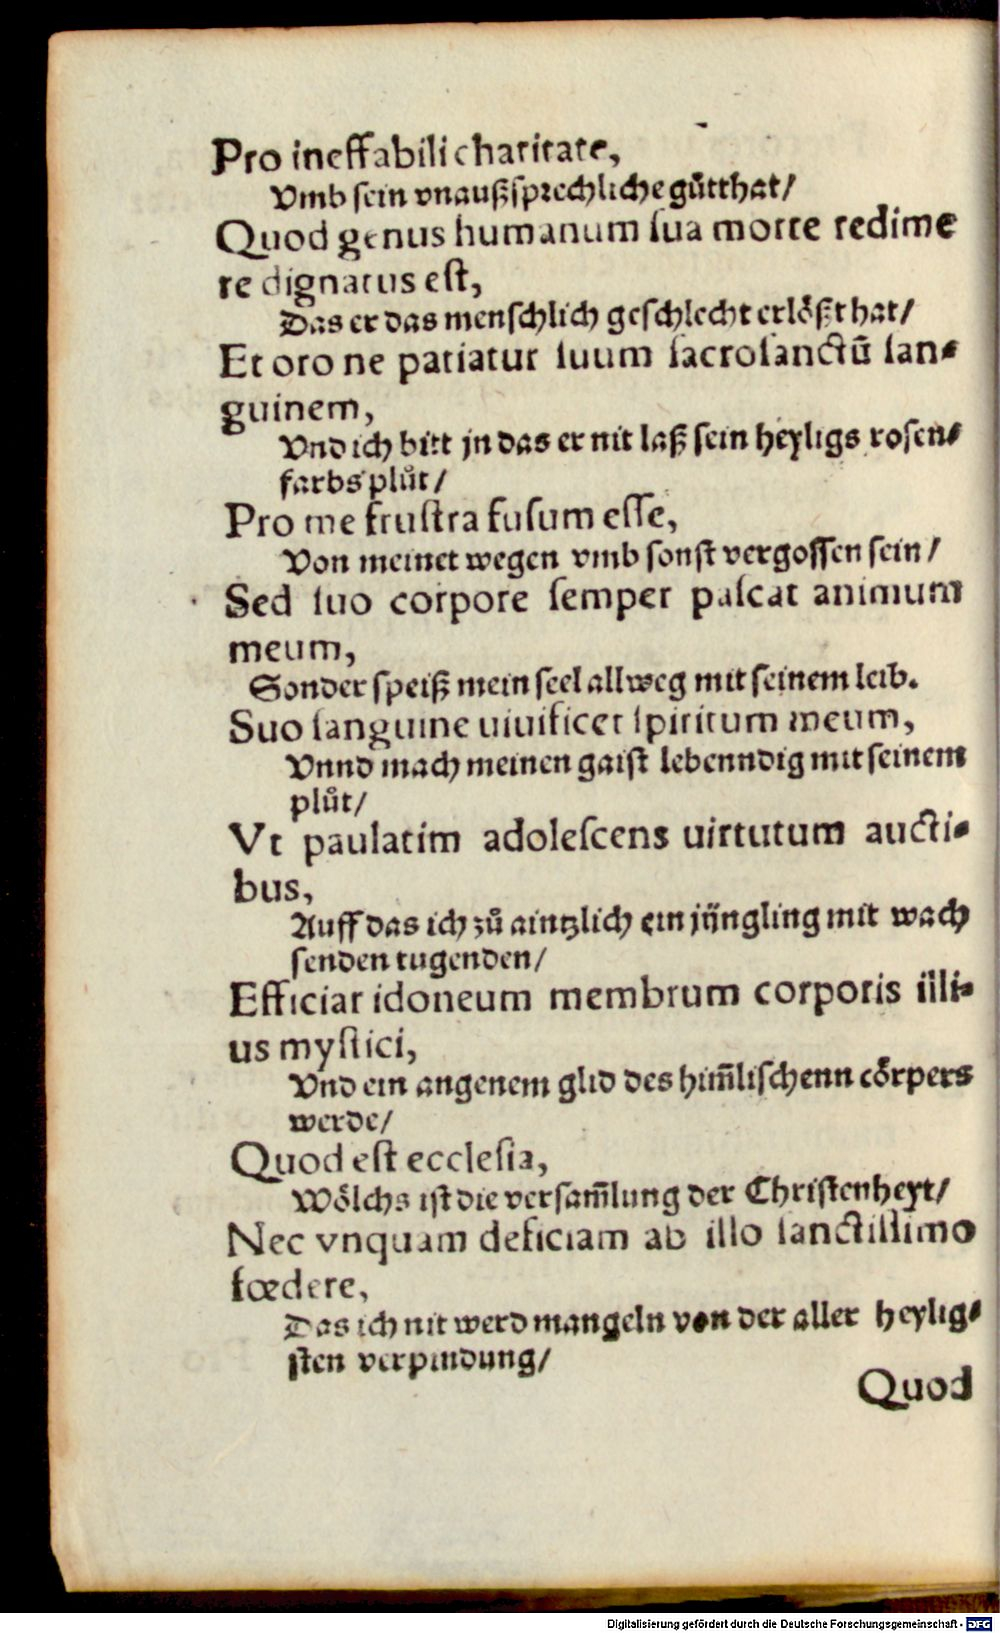 Pro ineffabili charitate,
Vmb sein vnaußsprechliche gůtthat/
Quod genus humanum ſua morte redime
re dignatus eſt,
Das er das menſchlich geſchlecht erlößt hat/
Et oro ne patiatur ſuum ſacroſanctū ſan-
guinem,
Vnd ich bitt jn das er nit laß sein heyligs rosen-
farbs plůt/
Pro me fruſtra fuſum eſſe,
Von meinet wegen vmb sonſt vergoſſen sein/
Sed ſuo corpore ſemper paſcat animum
meum,
Sonder speiß mein seel allweg mit seinem leib.
Suo ſanguine uiuificet ſpiritum meum,
Vnnd mach meinen gaiſt lebenndig mit seinem
plůt/
Vt paulatim adoleſcens uirtutum aucti-
bus,
Auff das ich zů aintzlich ein jüngling mit wach
senden tugenden/
Efficiar idoneum membrum corporis illi-
us myſtici,
Vnd ein angenem glid des him̄liſchenn cörpers
werde/
Quod eſt eccleſia,
Wölchs iſt die verſam̄lung der Chriſtenheyt/
Nec vnquam deficiam ab illo ſanctiſſimo
fœdere,
Das ich nit werd mangeln von der aller heylig-
ſten verpindung/
Quod
Digitalisierung gefördert durch die Deutsche Forschungsgemeinschaft - DFG